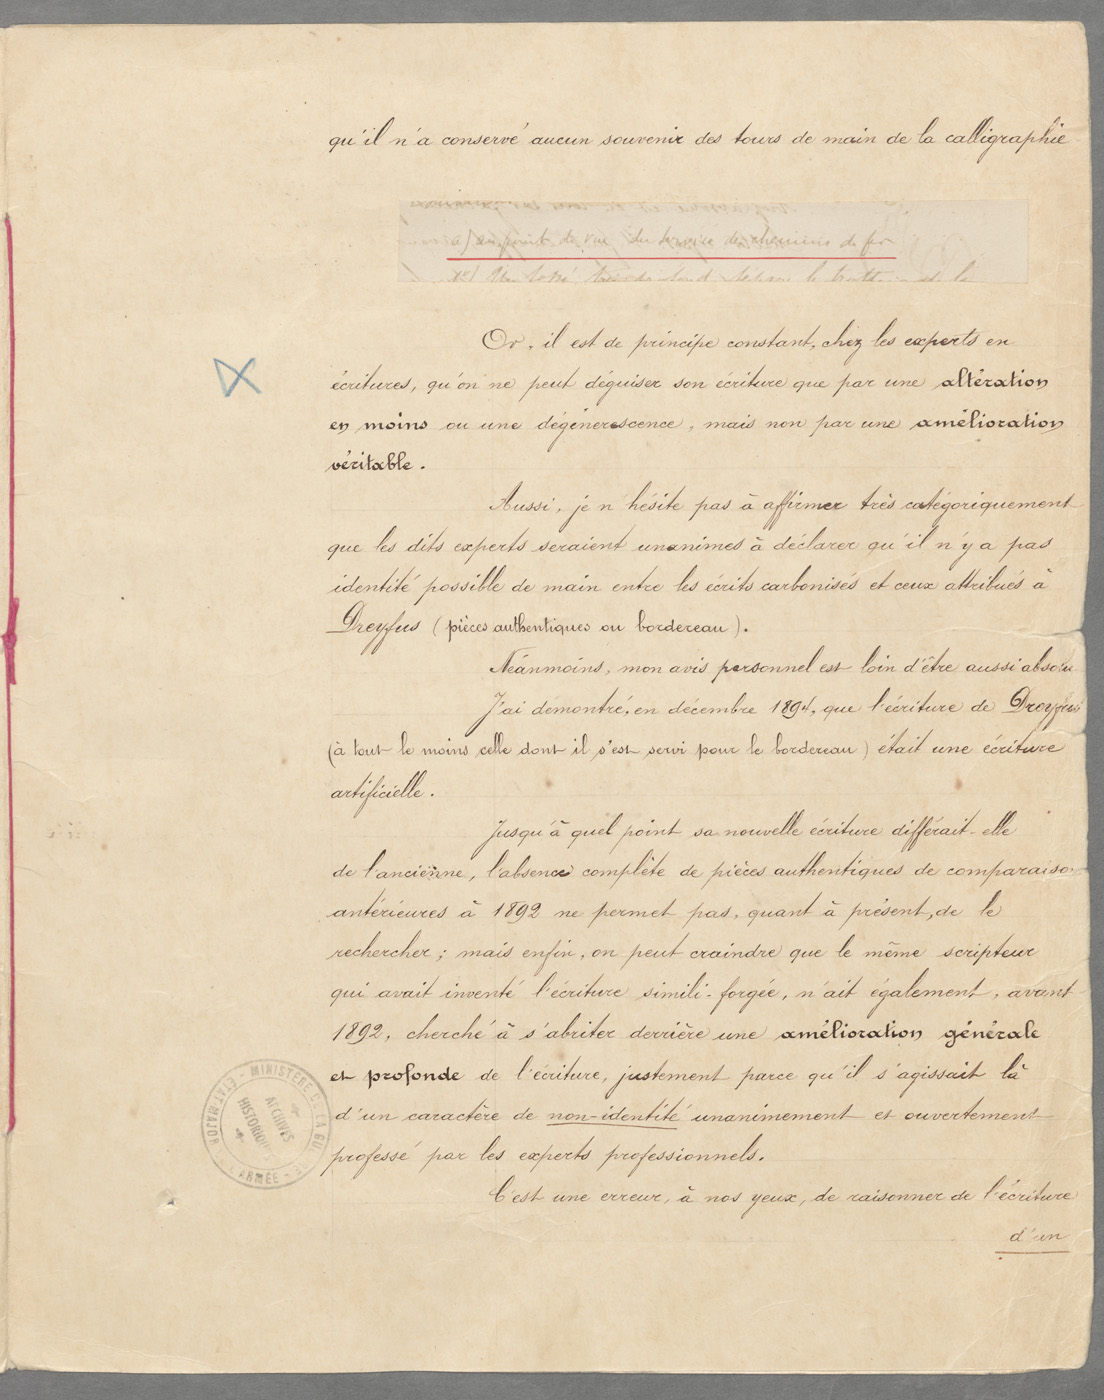 qu'il n'a conservé aucun souvenir des tours de main de la calligraphie
a) au point de vue du service des chemins de fer
Or, il est de principe constant, chez les experts en
écritures, qu'on ne peut déguiser son écriture que par une altération
en moins ou une dégénerescence, mais non par une amélioration
véritable.
Aussi, je n'hésite pas à affirmer très catégoriquement
que les dits experts seraient unanimes à déclarer qu'il n'y a pas
identité possible de main entre les écrits carbonisés et ceux attribués à
Dreyfus (pièces authentiques ou bordereau).
Néanmoins, mon avis personnel est loin d'être aussi absolu
J'ai démontré, en décembre 1894, que l'écriture de Dreyfus
(à tout le moins celle dont il s'est servi pour le bordereau) était une écriture
artificielle.
Jusqu'à quel point sa nouvelle écriture différait-elle
de l'ancienne, l'absence complète de pièces authentiques de comparaison
antérieures à 1892 ne permet pas, quant à présent, de le
rechercher; mais enfin, on peut craindre que le même scripteur
qui avait inventé l'écriture simili-forgée, n'ait également, avant
1892, cherché à s'abriter derrière une amélioration générale
et profonde de l'écriture, justement parce qu'il s'agissait là
d'un caractère de non-identité unanimement et ouvertement
professé par les experts professionnels.
C'est une erreur, à nos yeux, de raisonner de l'écriture
d'un
ETAT-MAJOR - MINISTÈRE DE LA GU
ARMÉE
ARCHIVES
HISTORIQUES